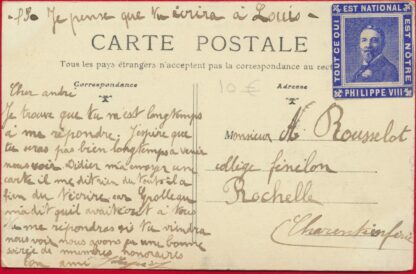 PS. Je pense que tu écrira à Louis -
CARTE POSTALE
Tous les pays étrangers n'acceptent pas la correspondance au rec
Correspondance
Adresse
TOUT CE QUI
EST NATIONAL
EST NOTRE
PHILIPPE VIII
10 €
Cher andré
Je trouve que tu va est longtemps
à me répondre. J'espère que
tu seras pas bien longtemps à venir
nous voir Didier m'a envoyer une
carte il me dit
fin du t'écrire car Grolleau
m'a dit quil avait écrit à tous
tu me répondras si tu viendra
nous voir nous avons eu une bonne
soirée de membres honoraires
ton ami
Monsieur A. Rousselot
collège fénélon
Rochelle
Charente inférie